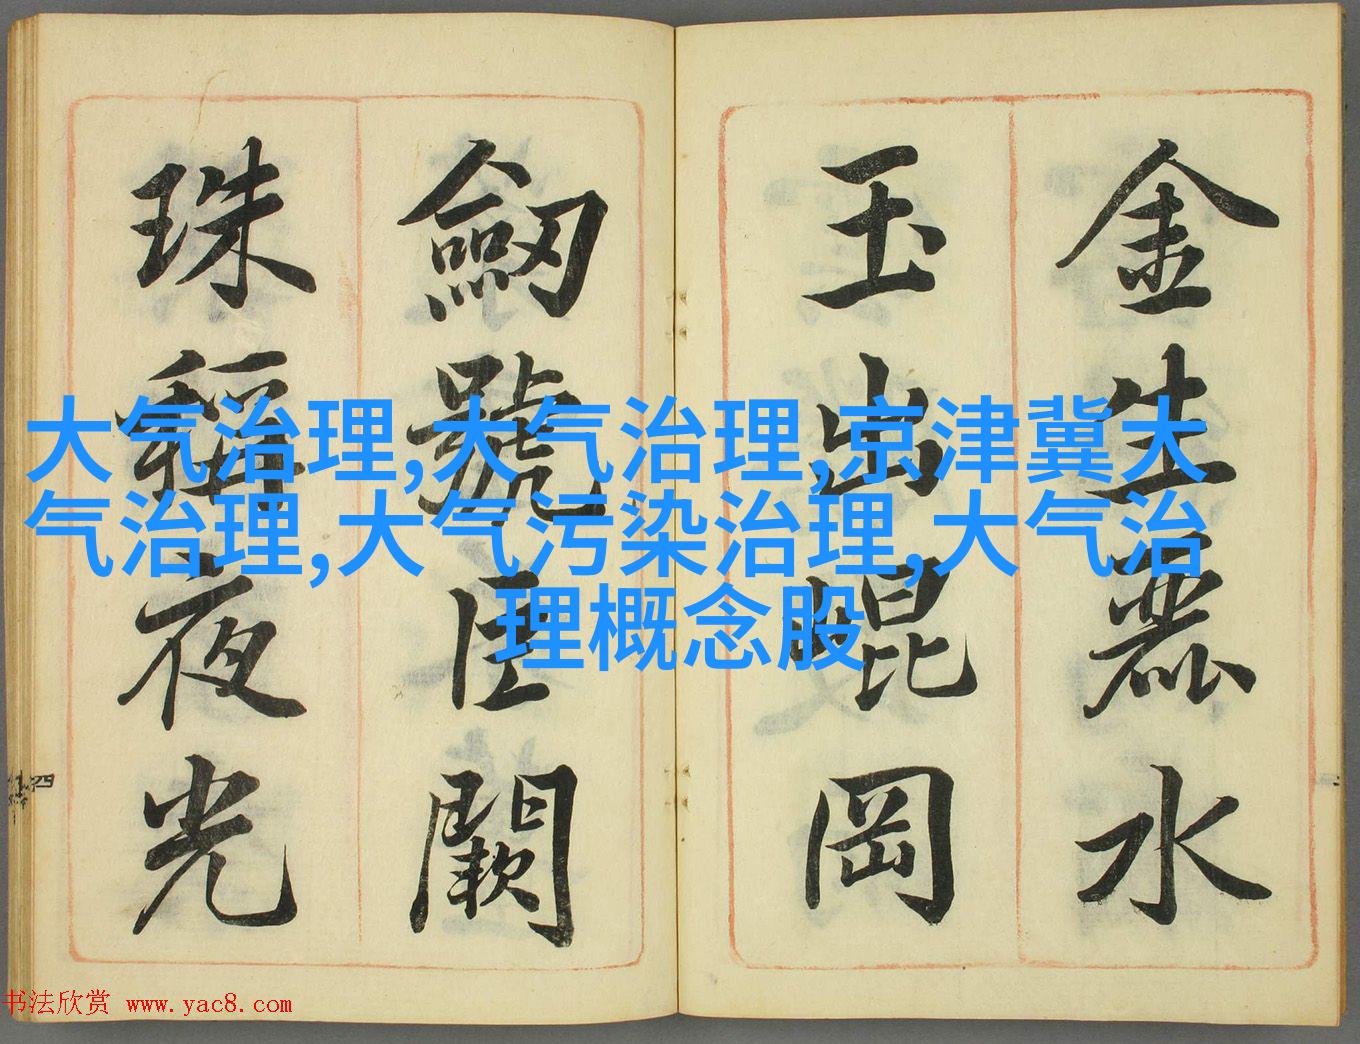 金生麗水
玉出崐岡
劒號巨闕
珠稱夜光
大气治理,大气治理,京津冀大
气治理,大气污染治理,大气治
理概念股
四
书法欣赏 www.yac8.com